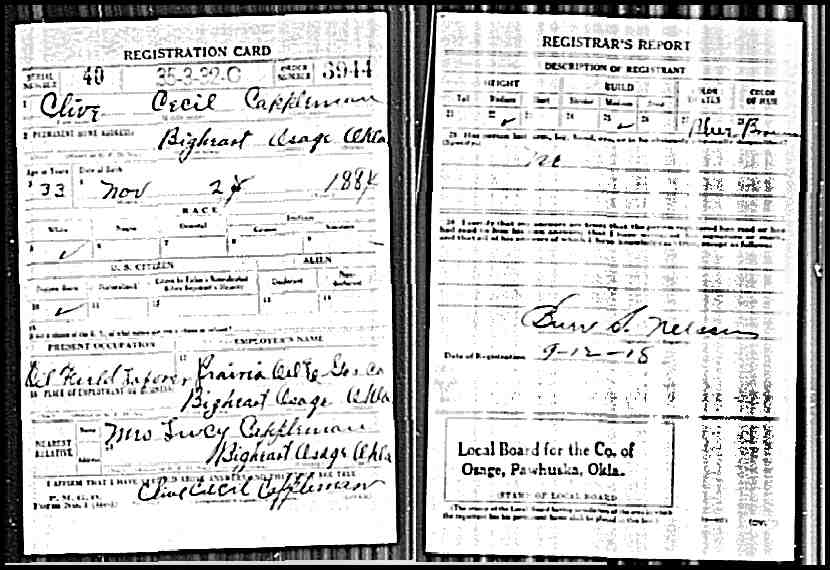 REGISTRATION CARD
SERIAL NUMBER 40 35-3-32-C ORDER NUMBER 3944
1 Clive Cecil Cappleman
2 PERMANENT HOME ADDRESS
Bigheart Osage Okla
Age in Years Date of Birth
33 Nov 24 1884
RACE
White Negro Oriental Indian
5 6 7 8 9
U. S. CITIZEN ALIEN
Native Born Naturalized Declarant Non-declarant
10 11 12 13 14
15
PRESENT OCCUPATION EMPLOYER'S NAME
Oil Field Laborer Prairie Oil & Gas Co
18 PLACE OF EMPLOYMENT OR BUSINESS
Bigheart Osage Okla
NEAREST RELATIVE Name Mrs Lucy Cappleman
Address Bigheart Osage Okla
I AFFIRM THAT I HAVE VERIFIED ABOVE ANSWERS AND THAT THEY ARE TRUE
P. M. G. O.
Form No. 1 (Red) Clive Cecil Cappleman
REGISTRAR'S REPORT
DESCRIPTION OF REGISTRANT
HEIGHT BUILD COLOR OF EYES COLOR OF HAIR
Tall Medium Short Slender Medium Stout
21 22 23 24 25 26 27 Blue 28 Brown
29 Has person lost arm, leg, hand, eye, or is he obviously physically disqualified?
(Specify.)
No
30 I certify that my answers are true; that the person registered has read or has
had read to him his own answers; that I have witnessed his signature or mark,
and that all of his answers of which I have knowledge are true, except as follows:
Date of Registration 9-12-18
Local Board for the Co. of
Osage, Pawhuska, Okla.
(STAMP OF LOCAL BOARD)
(The stamp of the Local Board having jurisdiction of the area in which
the registrant has his permanent home shall be placed in this box.)
(OVER)